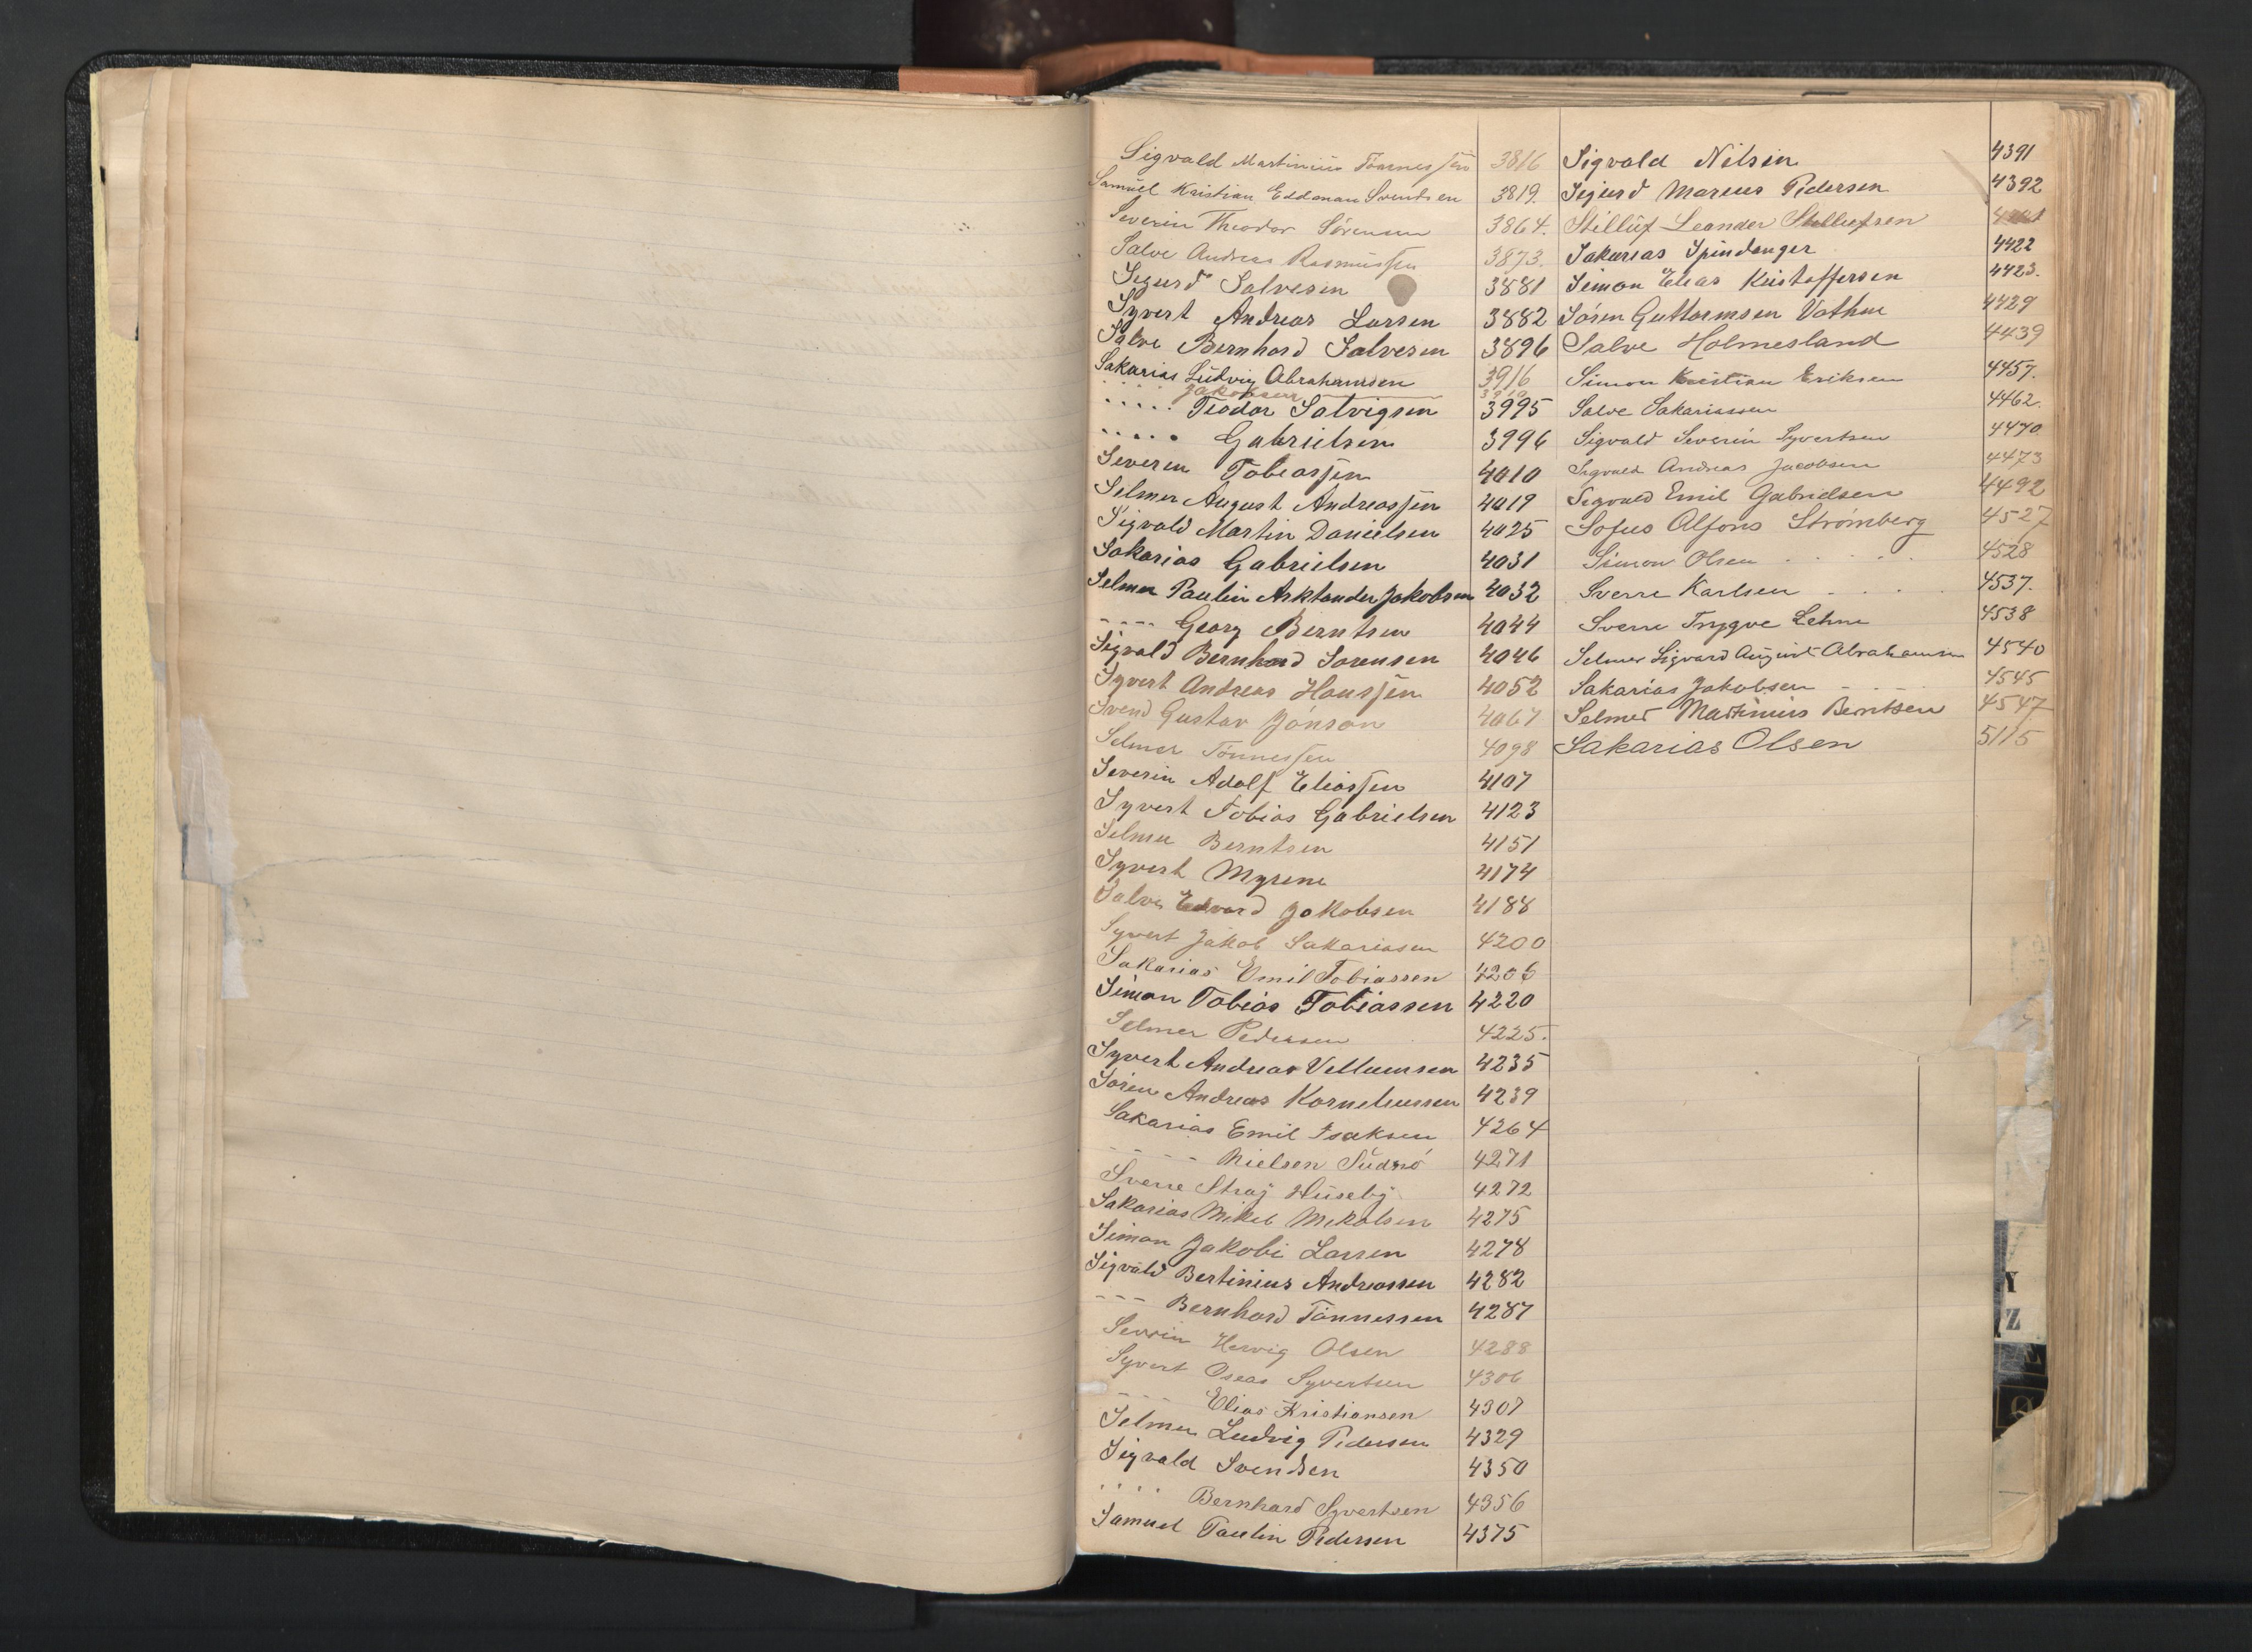 Sigvald Martinius Tönnessen 3816
Samuel Kristian Eddman Sventsen 3819.
Severin Theodor Sörensen 3864.
Salve Andreas Rasmussen 3873.
Sigurd Salvesen 3881
Syvert Andreas Larsen 3882
Salve Bernhard Salvesen 3896
Sakarias Ludvig Abrahamsen 3916
Jakobsen
..... Teodor Salvigsen 3995
..... Gabrielsen 3996
Severin Tobiassen 4010
Selmer August Andreassen 4019
Sigvald Martin Danielsen 4025
Sakarias Gabrielsen 4031
Selmer Paulin Asklander Jakobsen 4032
---- Georg Berntsen 4044
Sigvald Bernhard Sorensen 4046
Syvert Andreas Hanssen 4052
Svend Gustav Jónson 4067
Selmer Tönnessen 4098
Severin Adolf Eliassen 4107
Syvert Tobias Gabrielsen 4123
Selmer Berntsen 4151
Syvert Myrene 4174
Salve Edvard Jakobsen 4188
Syvert Jakob Sakariassen 4200
Sakarias Emil Tobiassen 4206
Simon Tobias Tobiassen 4220
Selmer Pedersen 4225.
Syvert Andreas Vellumsen 4235
Sören Andreas Korneliussen 4239
Sakarias Emil Isaksen 4264
----- Nielsen Südnö 4271
Sverre Stray Huseby 4272
Sakarias Mikel Mikalsen 4275
Simon Jakobi Larsen 4278
Sigvald Bertinius Andreassen 4282
--- Bernhard Tönnessen 4287
Sevrin Hervig Olsen 4288
Syvert Oseas Syvertsen 4306
--- Elias Kristiansen 4307
Selmer Ludvig Pedersen 4329
Sigvald Svendsen 4350
.... Bernhard Syvertsen 4356
Samuel Paulin Pedersen 4375
Sigvald Nilsen 4391
Sigurd Marius Pedersen 4392
Stilluf Leander Stellufsen
Sakarias Spindanger 4422
Simon Elias Kristoffersen 4423.
Sören Guttormsen Vathne 4429
Salve Holmesland 4439
Simon Kristian Eriksen 4457.
Salve Sakariassen 4462.
Sigvald Severin Syvertsen 4470
Sigvald Andreas Jacobsen 4473
Sigvald Emil Gabrielsen 4492
Sofus Alfons Strömberg 4527
Simon Olsen 4528
Sverre Karlsen 4537.
Sverre Trygve Lehne 4538
Selmer Sigvard August Abrahamsen 4540
Sakarias Jakobsen 4545
Selmer Martinius Berntsen 4547
Sakarias Olsen 5115
Y
Z
Q